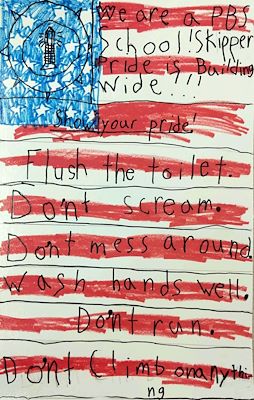 We are a PBS
School! Skipper
Pride is Building
Wide...!!
Show your pride!
Flush the toilet.
Don't scream.
Don't mess around
Wash hands well.
Don't run.
Don't Climb on anythi
ng